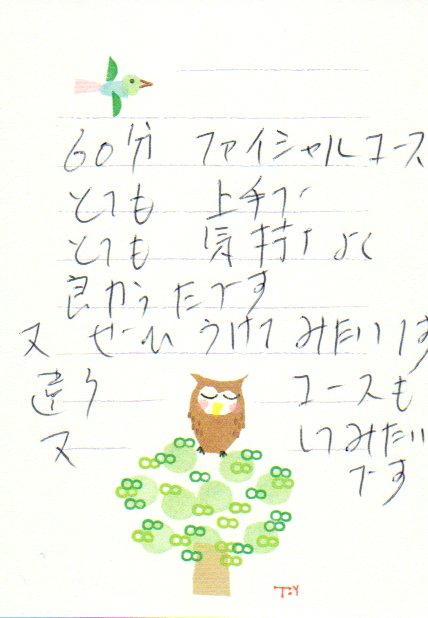 60分 ファイシャルコース
とても 上手で
とても 気持ち よく
良かったです
又 ぜひ うけてみたいです
違う コースも
又 してみたい
です
T:Y